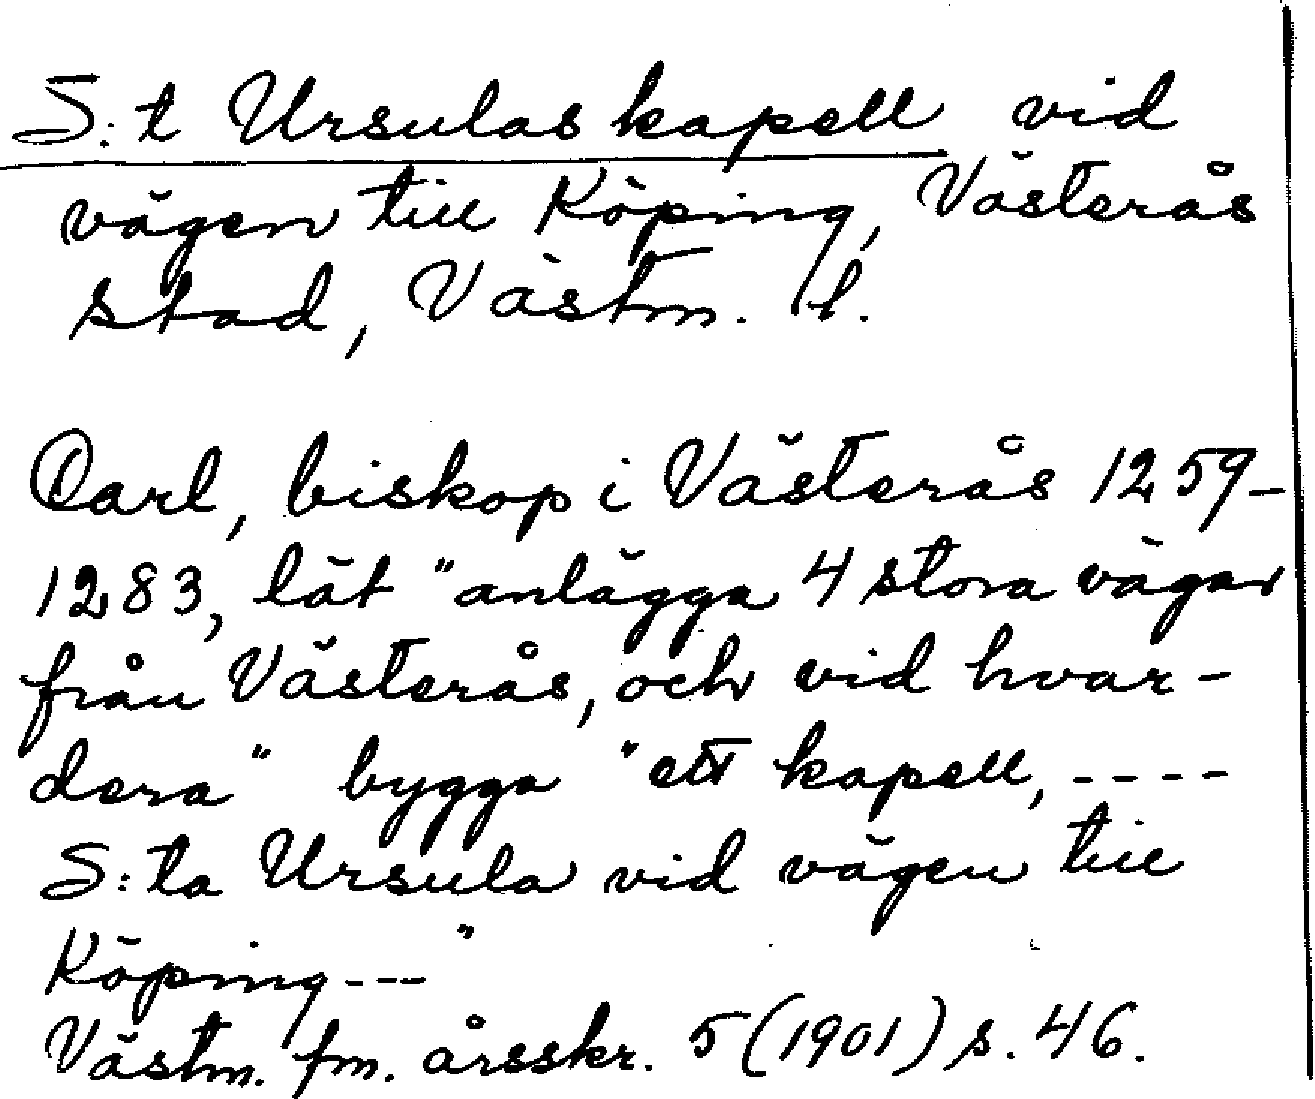 S:t Ursulas kapell vid
vägen till Köping, Västerås
stad, Västm. l.
Carl, biskop i Västerås 1259-
1283, lät "anlägga 4 stora vägar
från Västerås, och vid hvar-
dera" bygga "ett kapell, ----
S:ta Ursula vid vägen till
Köping---"
Västm. fm. årsskr. 5 (1901) s. 46.